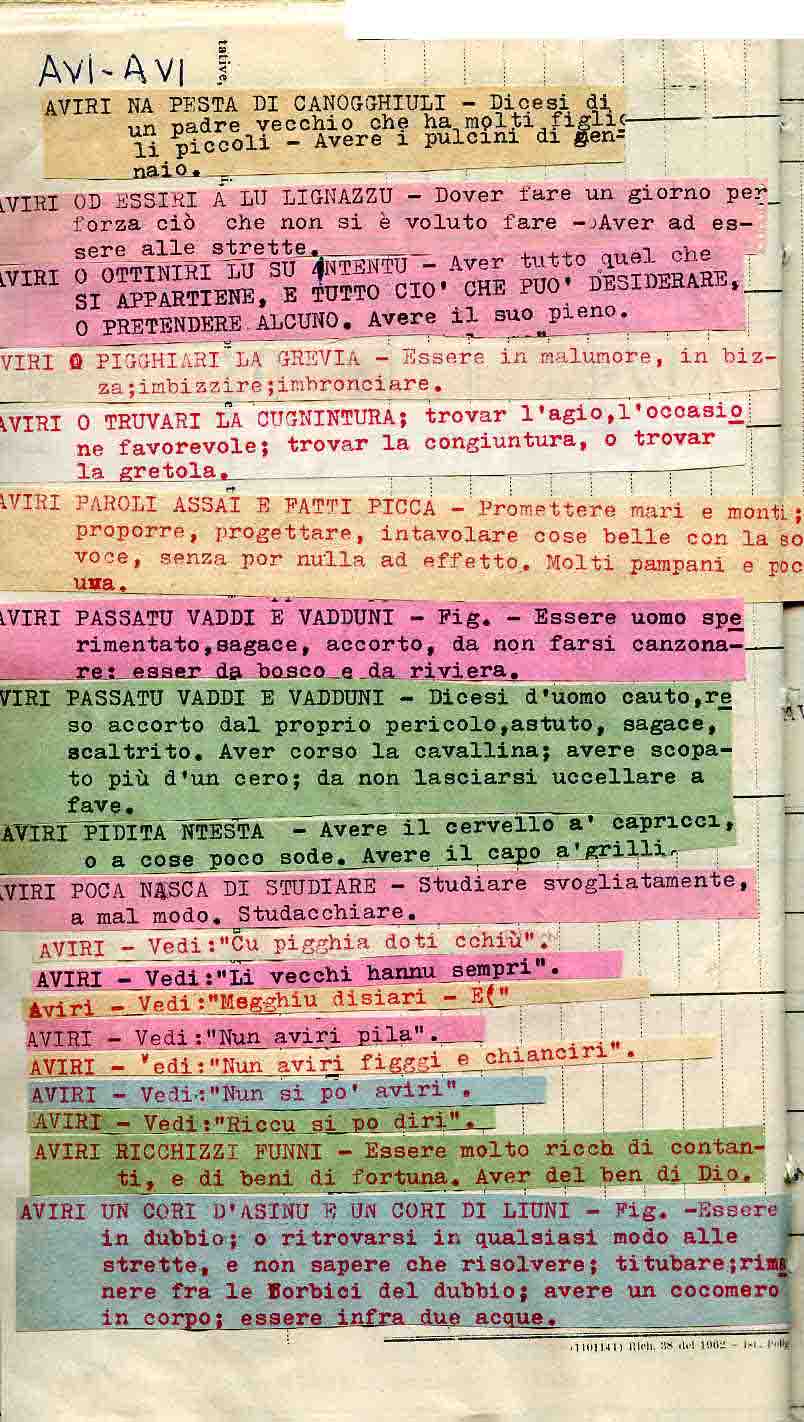 AVI-AVI
tative,
AVIRI NA PESTA DI CANOGGHIULI - Dicesi di
un padre vecchio che ha molti figlio
li piccoli - Avere i pulcini di gen=
naio.
AVIRI OD ESSIRI A LU LIGNAZZU - Dover fare un giorno per
forza ciò che non si è voluto fare - Aver ad es-
sere alle strette.
AVIRI O OTTINIRI LU SU INTENTU - Aver tutto quel che
SI APPARTIENE, E TUTTO CIO' CHE PUO' DESIDERARE,
O PRETENDERE ALCUNO. Avere il suo pieno.
VIRI O PIGGHIARI LA GREVIA - Essere in malumore, in biz-
za;imbizzire;imbronciare.
AVIRI O TRUVARI LA CUGNINTURA; trovar l'agio,l'occasio
ne favorevole; trovar la congiuntura, o trovar
la gretola.
AVIRI PAROLI ASSAI E FATTI PICCA - Promettere mari e monti;
proporre, progettare, intavolare cose belle con la so
voce, senza por nulla ad effetto. Molti pampani e poc
uva.
AVIRI PASSATU VADDI E VADDUNI - Fig. - Essere uomo spe
rimentato,sagace, accorto, da non farsi canzona-
re: esser da bosco e da riviera.
VIRI PASSATU VADDI E VADDUNI - Dicesi d'uomo cauto,re
so accorto dal proprio pericolo,astuto, sagace,
scaltrito. Aver corso la cavallina; avere scopa-
to più d'un cero; da non lasciarsi uccellare a
fave.
AVIRI PIDITA NTESTA - Avere il cervello a' capricci,
o a cose poco sode. Avere il capo a'grilli.
AVIRI POCA NASCA DI STUDIARE - Studiare svogliatamente,
a mal modo. Studacchiare.
AVIRI - Vedi:"Cu pigghia doti cchiù".
AVIRI - Vedi:"Li vecchi hannu sempri".
Aviri - Vedi:"Megghiu disiari - E("
AVIRI - Vedi:"Nun aviri pila".
AVIRI - Vedi:"Nun aviri figggi e chianciri".
AVIRI - Vedi:"Nun si po' aviri".
AVIRI - Vedi:"Riccu si po diri".
AVIRI RICCHIZZI FUNNI - Essere molto ricch di contan-
ti, e di beni di fortuna. Aver del ben di Dio.
AVIRI UN CORI D'ASINU E UN CORI DI LIUNI - Fig. -Essere
in dubbio; o ritrovarsi in qualsiasi modo alle
strette, e non sapere che risolvere; titubare;rima
nere fra le forbici del dubbio; avere un cocomero
in corpo; essere infra due acque.
(1101141) Rich. 38 del 1962 - Ist. Polig